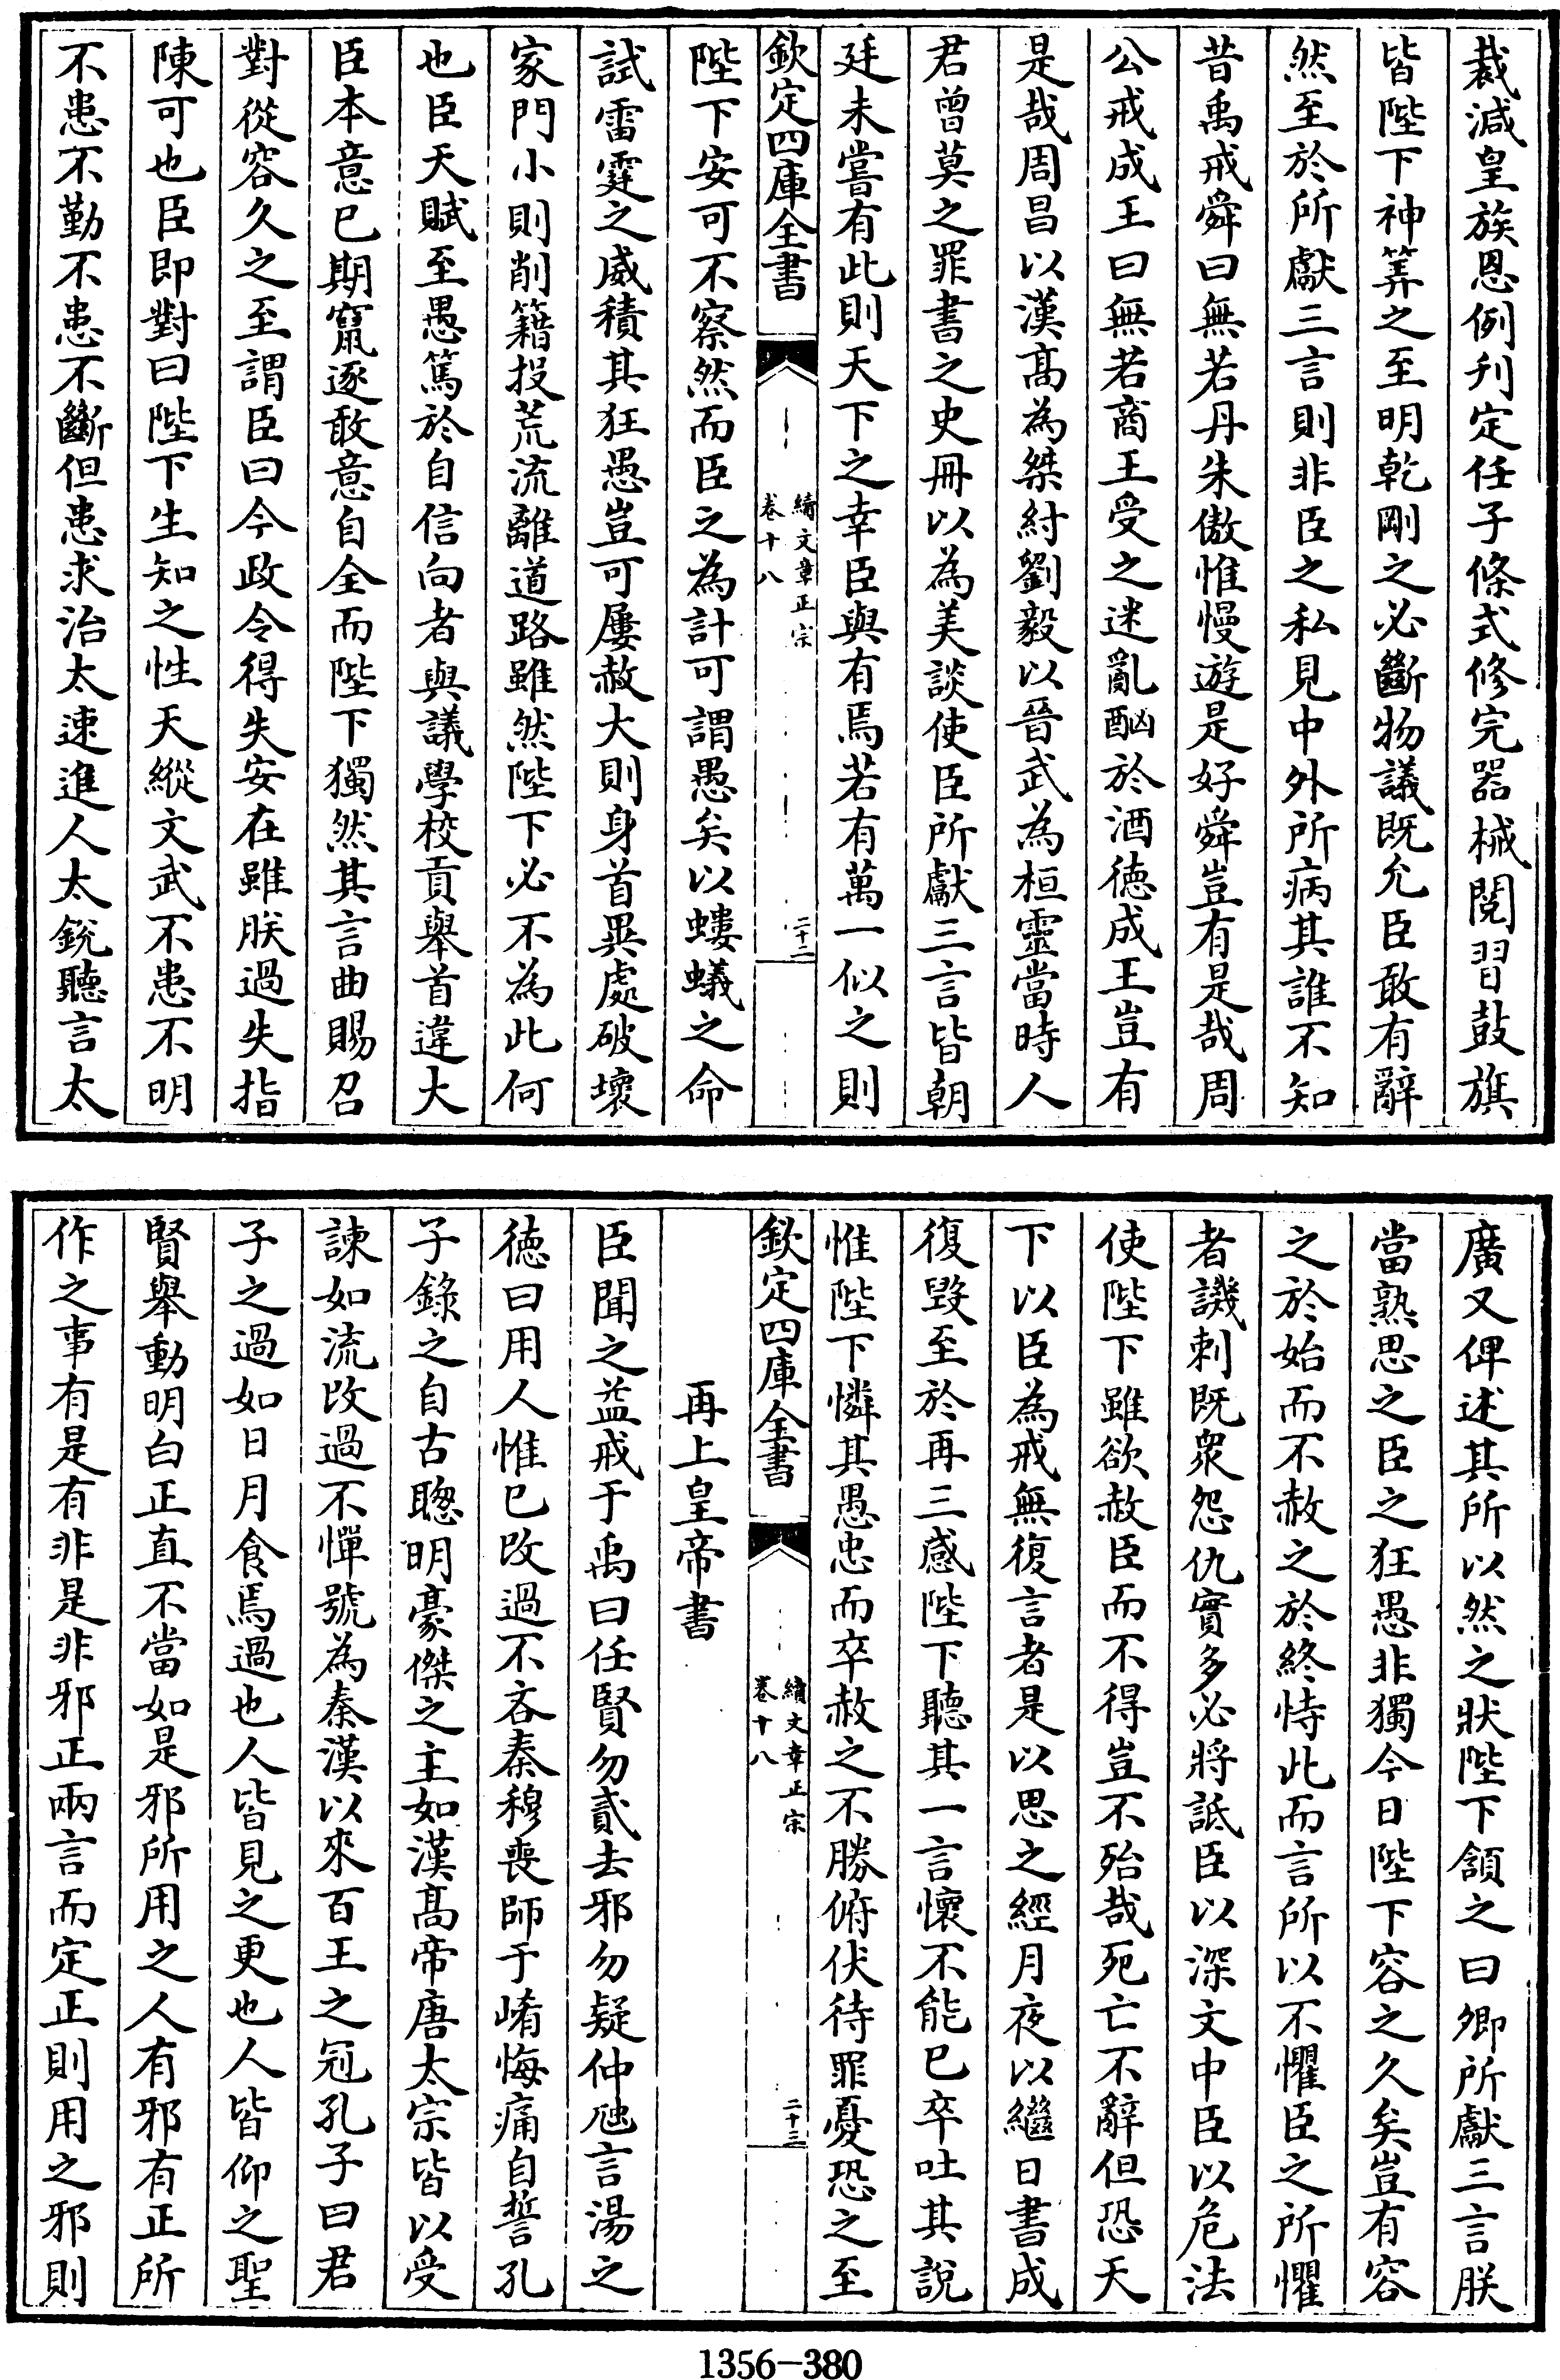 裁減皇族恩例刋定任子條式修完器械閱習鼓旗
皆陛下神筭之至明乾剛之必斷物議既允臣敢有辭
然至於所獻三言則非臣之私見中外所病其誰不知
昔禹戒舜曰無若丹朱傲惟慢遊是好舜豈有是哉周
公戒成王曰無若商王受之迷亂酗於酒徳成王豈有
是哉周昌以漢髙為桀紂劉毅以晉武為桓靈當時人
君曾莫之罪書之史冊以為美談使臣所獻三言皆朝
廷未嘗有此則天下之幸臣與有焉若有萬一似之則
欽定四庫全書
續文章正宗
卷十八
二十二
陛下安可不察然而臣之為計可謂愚矣以螻蟻之命
試雷霆之威積其狂愚豈可屢赦大則身首異處破壞
家門小則削籍投荒流離道路雖然陛下必不為此何
也臣天賦至愚篤於自信向者與議學校貢舉首違大
臣本意已期竄逐敢意自全而陛下獨然其言曲賜召
對從容久之至謂臣曰今政令得失安在雖朕過失指
陳可也臣即對曰陛下生知之性天縱文武不患不明
不患不勤不患不斷但患求治太速進人太銳聽言太
廣又俾述其所以然之狀陛下頷之曰卿所獻三言朕
當熟思之臣之狂愚非獨今日陛下容之久矣豈有容
之於始而不赦之於終恃此而言所以不懼臣之所懼
者譏刺既衆怨仇實多必將詆臣以深文中臣以危法
使陛下雖欲赦臣而不得豈不殆哉死亡不辭但恐天
下以臣為戒無復言者是以思之經月夜以繼日書成
復毀至於再三感陛下聽其一言懷不能已卒吐其說
惟陛下憐其愚忠而卒赦之不勝俯伏待罪憂恐之至
欽定四庫全書
續文章正宗
卷十八
二十三
再上皇帝書
臣聞之益戒于禹曰任賢勿貳去邪勿疑仲虺言湯之
徳曰用人惟已改過不吝秦穆喪師于崤悔痛自誓孔
子錄之自古聰明豪傑之主如漢髙帝唐太宗皆以受
諫如流改過不憚號為秦漢以來百王之冠孔子曰君
子之過如日月食焉過也人皆見之更也人皆仰之聖
賢舉動明白正直不當如是邪所用之人有邪有正所
作之事有是有非是非邪正兩言而定正則用之邪則
1356-380